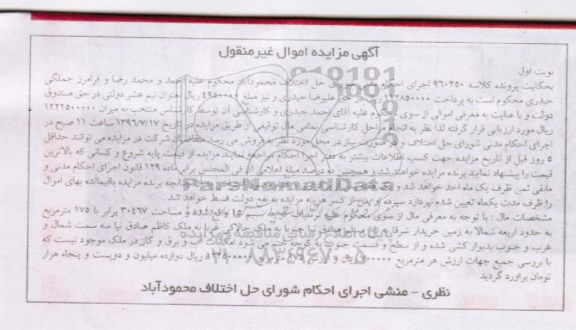 آگهی مزایده اموال غیر منقول
نوبت اول
بحکایت پرونده کلاسه ۹۶۰۲۵۰ اجرای احکام شورای حل اختلاف محمودآباد محکوم علیه احمد و محمد رضا و فرامرز جملگی
حیدری محکوم است به پرداخت در حق علیرضا حیدری و نیز مبلغ ۴۹۵۰۰۰۰ ریال بعنوان نیم عشر دولتی در حق صندوق
دولت و با عنایت به معرفی اموالی از سوی محکوم علیه آقای احمد حیدری و کارشناسی آن توسط کارشناس منتخب به میزان ۱۲۲۲۵۰۰۰۰۰
ریال مورد ارزیابی قرار گرفته لذا نظر به انجام مراحل کارشناسی تمامی مال توقیفی از طریق مزایده در تاریخ ۱۳۹۶/۹/۱۷ ساعت ۱۱ صبح در
اجرای احکام مدنی شورای حل اختلاف و در صورت نیاز در محل مورد نظر به فروش می رسد متقاضیان شرکت در مزایده می توانند حداقل
۵ روز قبل از تاریخ مزایده جهت کسب اطلاعات بیشتر به دفتر اجرا احکام مراجعه نمایند مزایده از قیمت پایه شروع و کسانی که بالاترین
قیمت را پیشنهاد نمایند برنده مزایده خواهند شد و همچنین ده درصد مبلغ اعلامی از فی المجلس برابر ماده ۱۲۹ قانون اجرای احکام مدنی و
مابقی ثمن ظرف یک ماه اخذ خواهد شد و برنده مزایده باقیمانده بهای اموال
را ظرف مدت یکماه تعیین شده نپردازد سپرده او پس از کسر هزینه مزایده به نفع دولت ضبط خواهد شد
مشخصات مال : با توجه به معرفی مال از سوی محکوم علیه واقع شده و مساحت ۳۰۴۶۷ برابر با ۱۷۵ مترمربع
به حدود اربعه شمالا به زمین خریدار شرقا صادق نیا جنوبا به ملک غربا به ملک کاظم صادق نیا سه سمت شمال و
غرب و جنوب بدیوار کشی شده و از سطح و قسمت جنوب به کوچه ختم می شود امکانات آب و برق و گاز در ملک موجود نیست که
با بررسی جمیع جهات ارزش هر مترمربع ریال دوازده میلیون و دویست و پنجاه هزار
تومان برآورد گردید
نظری - منشی اجرای احکام شورای حل اختلاف محمودآباد
ParsNamadData
۰۲۱-۸۸۳۴۹۶۷۰-۵